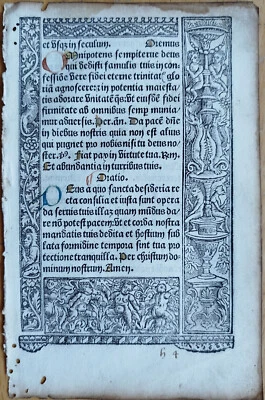 et vsqȝ in seculum. Oremus
OMnipotens sempiterne deus
qui dedisti famulis tuis in con-
fessiõe vere fidei eterne trinitatꝭ gloriã
agnoscere: et in potentia maiesta
tis adorare vnitatẽ qs. vt eiusdẽ fidei
firmitate ab omnibus semp muniamur
aduersis. Per. ãn. Da pacẽ dñe
in diebus nostris quia non est alius
qui pugnet pro nobis nisi tu deus no-
ster. Fiat pax in virtute tua. Rm.
Et abundantia in turribus tuis.
Oratio.
DEus a quo sancta desideria re
cta consilia et iusta sunt opera
da seruis tuis illaȝ quam mũdus da
re nõ potest pacem: vt et corda nostra
mandatis tuis dedita et hostium sub
lata formidine tempora sint tua pro
tectione tranquilla. Per christum do-
minum nostrum. Amen.
h 4